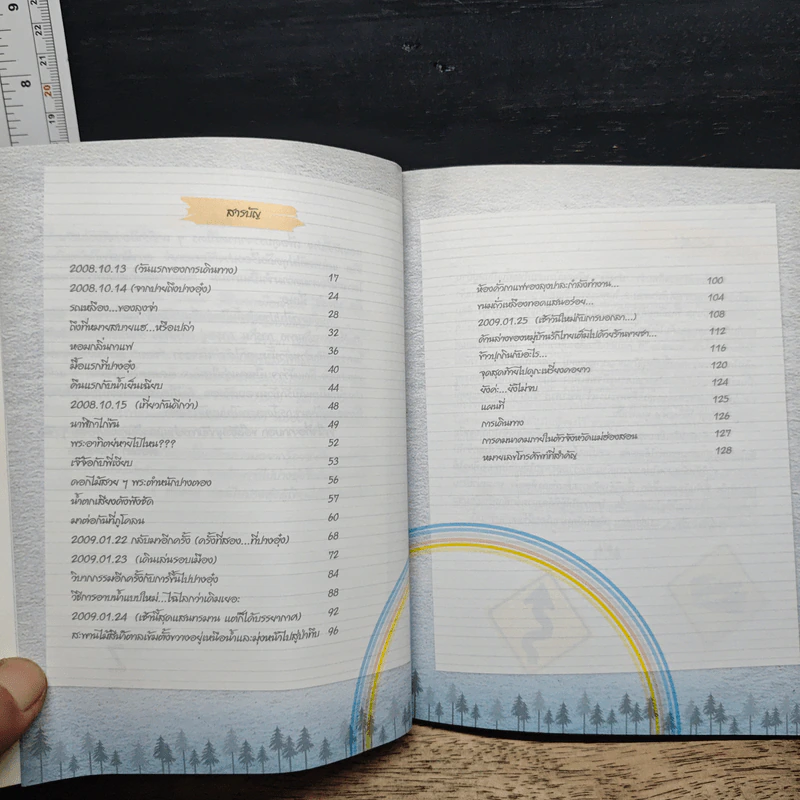 9
8
22
21
20
19
สารบัญ
2008.10.13 (วันแรกของการเดินทาง) 17
2008.10.14 (จากปายถึงปางอุ๋ง) 24
รถเหลือง...ของลุงจ่า 28
ถึงที่หมายสบายแฮ...หรือเปล่า 32
หอมกลิ่นกาแฟ 36
มื้อแรกที่ปางอุ๋ง 40
คืนแรกกับน้ำเย็นเฉียบ 44
2008.10.15 (เที่ยวกันดีกว่า) 48
นาฬิกาไก่ขัน 49
พระอาทิตย์หายไปไหน??? 52
เซ็ซ้อกับพี่เงียบ 53
ดอกไม้สวย ๆ พระตำหนักปางตอง 56
น้ำตกเสียงดังฟังชัด 57
มาต่อกันที่ภูโคลน 60
2009.01.22 กลับมาอีกครั้ง (ครั้งที่สอง...ที่ปางอุ๋ง) 68
2009.01.23 (เดินเล่นรอบเมือง) 72
วิบากกรรมอีกครั้งกับการขึ้นไปปางอุ๋ง 84
วิธีการอาบน้ำแบบใหม่...ไฉไลกว่าเดิมเยอะ 88
2009.01.24 (เช้านี้สุดแสนทรมาน แต่ก็ได้บรรยากาศ) 92
สะพานไม้สีน้ำตาลเข้มตั้งขวางอยู่เหนือน้ำและมุ่งหน้าไปสู่ป่าทึบ 96
ห้องคั่วกาแฟของลุงปาละกำลังทำงาน... 100
ขนมถั่วเหลืองทอดแสนอร่อย... 104
2009.01.25 (เช้าวันใหม่กับการบอกลา...) 108
ด้านล่างของหมู่บ้านรักไทยเต็มไปด้วยร้านขายชา... 112
ข้าวปุกกินกับอะไร... 116
จุดสุดท้ายไปดูกะเหรี่ยงคอยาว 120
ยังค่ะ...ยังไม่จบ 124
แผนที่ 125
การเดินทาง 126
การคมนาคมภายในตัวจังหวัดแม่ฮ่องสอน 127
หมายเลขโทรศัพท์ที่สำคัญ 128